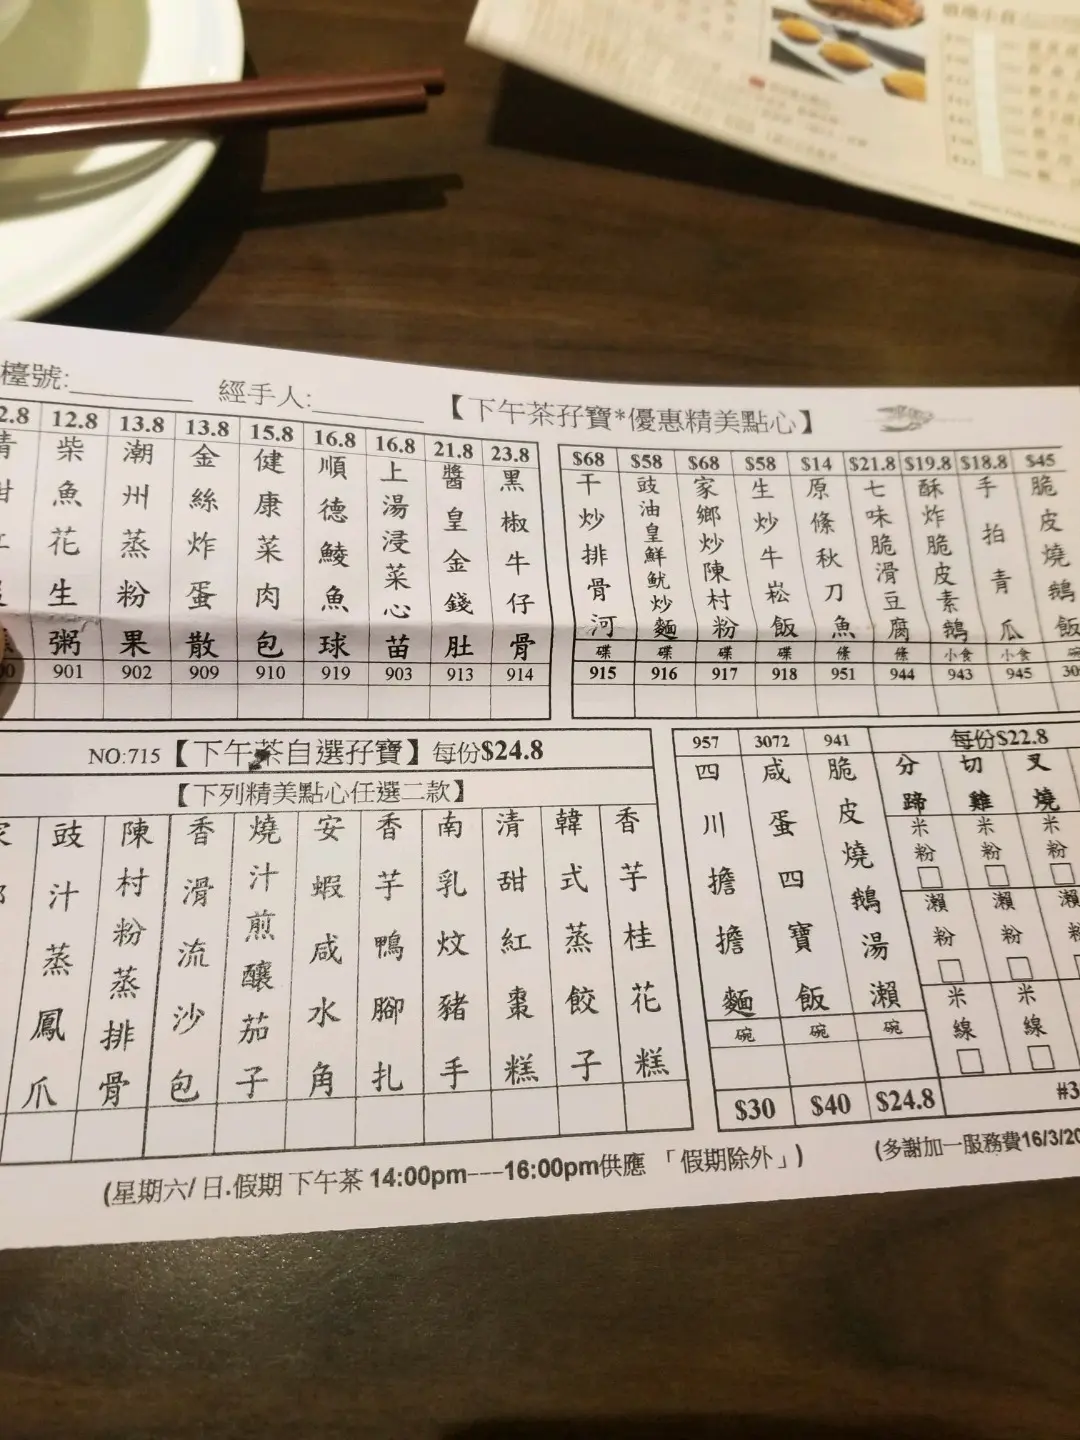 檯號:
經手人:
【下午茶孖寶*優惠精美點心】
2.8 12.8 13.8 13.8 15.8 16.8 16.8 21.8 23.8
柴魚花生粥 901
潮州蒸粉果 902
金絲炸蛋散 909
健康菜肉包 910
順德鯪魚球 919
上湯浸菜心苗 903
醬皇金錢肚 913
黑椒牛仔骨 914
$68 $58 $68 $58 $14 $21.8 $19.8 $18.8 $45
干炒排骨河 碟 915
豉油皇鮮魷炒麵 碟 916
家鄉炒陳村粉 碟 917
生炒牛崧飯 碟 918
原條秋刀魚 條 951
七味脆滑豆腐 條 944
酥炸脆皮素鵝 小食 943
手拍青瓜 小食 945
脆皮燒鵝飯 碗
NO:715【下午茶自選孖寶】每份$24.8
【下列精美點心任選二款】
豉汁蒸鳳爪
陳村粉蒸排骨
香滑流沙包
燒汁煎釀茄子
安蝦咸水角
香芋鴨腳扎
南乳炆豬手
清甜紅棗糕
韓式蒸餃子
香芋桂花糕
957 3072 941 每份$22.8
四川擔擔麵 碗 $30
咸蛋四寶飯 碗 $40
脆皮燒鵝湯瀨 碗 $24.8
分蹄 切雞 叉燒
米粉 米粉 米粉
瀨粉 瀨粉 瀨
米線 米線
#3
(星期六/日.假期 下午茶 14:00pm----16:00pm供應 「假期除外」)
(多謝加一服務費16/3/20